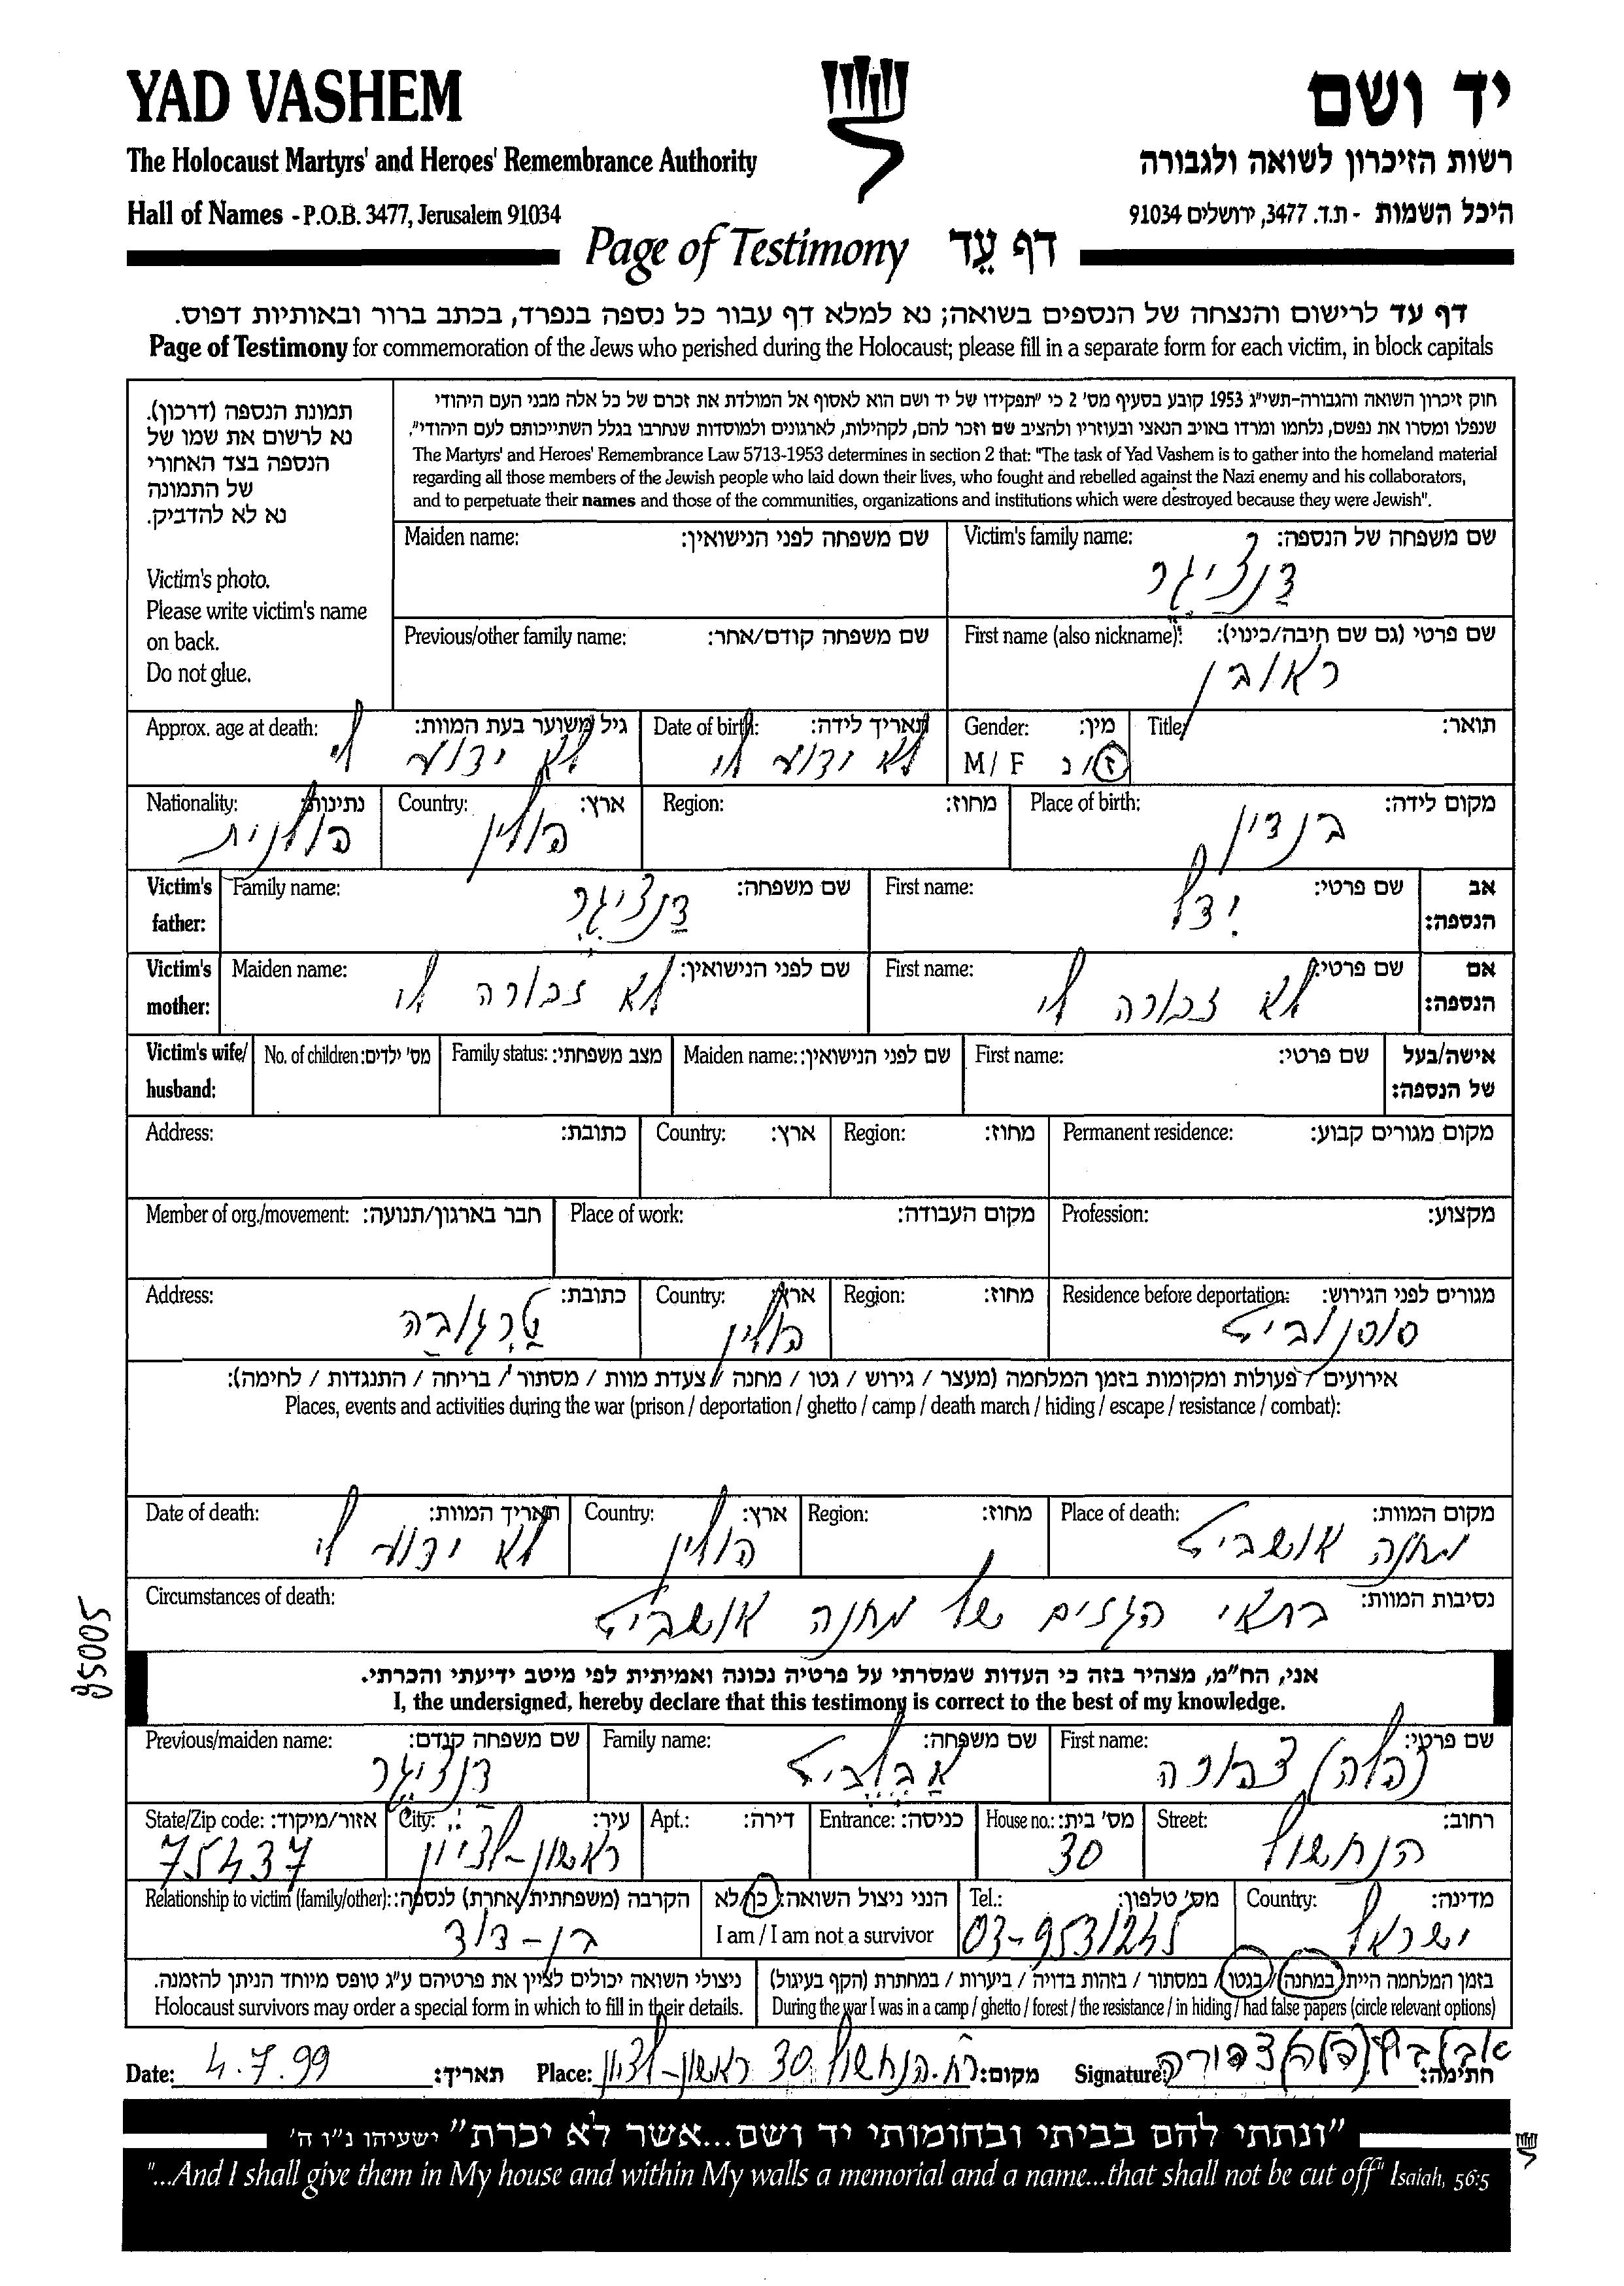 YAD VASHEM
יד ושם
The Holocaust Martyrs' and Heroes' Remembrance Authority
רשות הזיכרון לשואה ולגבורה
Hall of Names - P.O.B. 3477, Jerusalem 91034
היכל השמות - ת.ד. 3477, ירושלים 91034
Page of Testimony דף עֵד
דף עד לרישום והנצחה של הנספים בשואה; נא למלא דף עבור כל נספה בנפרד, בכתב ברור ובאותיות דפוס.
Page of Testimony for commemoration of the Jews who perished during the Holocaust; please fill in a separate form for each victim, in block capitals
תמונת הנספה (דרכון).
נא לרשום את שמו של
הנספה בצד האחורי
של התמונה
נא לא להדביק.
Victim's photo.
Please write victim's name
on back.
Do not glue.
חוק זיכרון השואה והגבורה-תשי"ג 1953 קובע בסעיף מס' 2 כי "תפקידו של יד ושם הוא לאסוף אל המולדת את זכרם של כל אלה מבני העם היהודי
שנפלו ומסרו את נפשם, נלחמו ומרדו באויב הנאצי ובעוזריו ולהציב שם וזכר להם, לקהילות, לארגונים ולמוסדות שנחרבו בגלל השתייכותם לעם היהודי".
The Martyrs' and Heroes' Remembrance Law 5713-1953 determines in section 2 that: "The task of Yad Vashem is to gather into the homeland material
regarding all those members of the Jewish people who laid down their lives, who fought and rebelled against the Nazi enemy and his collaborators,
and to perpetuate their names and those of the communities, organizations and institutions which were destroyed because they were Jewish".
Victim's family name: שם משפחה של הנספה:
דַנציגר
Maiden name: שם משפחה לפני הנישואין:
First name (also nickname): שם פרטי (גם שם חיבה/כינוי):
ראובן
Previous/other family name: שם משפחה קודם/אחר:
Title: תואר:
Gender: מין:
M / F ז / נ
Date of birth: תאריך לידה:
לא ידוע לי
Approx. age at death: גיל משוער בעת המוות:
לא ידוע לי
Place of birth: מקום לידה:
בנדין
Region: מחוז:
Country: ארץ:
פולין
Nationality: נתינות:
פולנית
Victim's father: אב הנספה:
First name: שם פרטי:
יִדל
Family name: שם משפחה:
דַנציגֶר
Victim's mother: אם הנספה:
First name: שם פרטי:
לא זכורה לי
Maiden name: שם לפני הנישואין:
לא זכורה לי
Victim's wife/ husband: אישה/בעל של הנספה:
First name: שם פרטי:
Maiden name: שם לפני הנישואין:
Family status: מצב משפחתי:
No. of children: מס' ילדים:
Permanent residence: מקום מגורים קבוע:
Region: מחוז:
Country: ארץ:
Address: כתובת:
Profession: מקצוע:
Place of work: מקום העבודה:
Member of org./movement: חבר בארגון/תנועה:
Residence before deportation: מגורים לפני הגירוש:
סוסנוביץ
Region: מחוז:
Country: ארץ:
פולין
Address: כתובת:
טַרְגוֹבַה
אירועים / פעולות ומקומות בזמן המלחמה (מעצר / גירוש / גטו / מחנה / צעדת מוות / מסתור / בריחה / התנגדות / לחימה):
Places, events and activities during the war (prison / deportation / ghetto / camp / death march / hiding / escape / resistance / combat):
Place of death: מקום המוות:
מחנה אושביץ
Region: מחוז:
Country: ארץ:
פולין
Date of death: תאריך המוות:
לא ידוע לי
Circumstances of death: נסיבות המוות:
בתאי הגזים של מחנה אושביץ
85005
אני, הח"מ, מצהיר בזה כי העדות שמסרתי על פרטיה נכונה ואמיתית לפי מיטב ידיעתי והכרתי.
I, the undersigned, hereby declare that this testimony is correct to the best of my knowledge.
First name: שם פרטי:
צפורה
Family name: שם משפחה:
Previous/maiden name: שם משפחה קודם:
דַנציגֶר
Street: רחוב:
הנחשול
House no.: מס' בית:
30
Entrance: כניסה:
Apt.: דירה:
City: עיר:
ראשון-לציון
State/Zip code: אזור/מיקוד:
75437
Country: מדינה:
ישראל
Tel.: מס' טלפון:
03-9531245
הנני ניצול השואה: כן/לא
I am / I am not a survivor
Relationship to victim (family/other): הקרבה (משפחתית/אחרת) לנספה:
בן-דוד
בזמן המלחמה הייתי במחנה / בגטו / במסתור / בזהות בדויה / ביערות / במחתרת (הקף בעיגול)
During the war I was in a camp / ghetto / forest / the resistance / in hiding / had false papers (circle relevant options)
ניצולי השואה יכולים לציין את פרטיהם ע"ג טופס מיוחד הניתן להזמנה.
Holocaust survivors may order a special form in which to fill in their details.
Date: 4.7.99 תאריך:
Place: רח. הנחשול 30 ראשון-לציון מקום:
Signature: צפורה חתימה:
"ונתתי להם בביתי ובחומותי יד ושם...אשר לא יכרת" ישעיהו נ"ו ה'
"...And I shall give them in My house and within My walls a memorial and a name...that shall not be cut off" Isaiah, 56:5